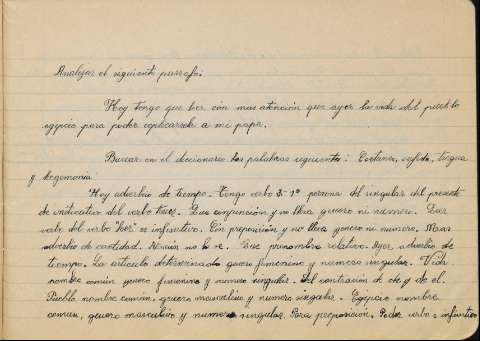 Analizar el siguiente parrafo.
Hoy tengo que leer con mas atención que ayer la vida del pueblo
egipcio para poder explicarsela a mi papa.
Buscar en el diccionario las palabras siguientes: Cortaza, tregua
y hegemonia
Hoy adverbio de tiempo - Tengo verbo 3- 1º persona del singular del presente
de indicativo del verbo tener. Que conjunción y no lleva genero ni numero. Leer
verbo "leer" es infinitivo. Con preposición y no lleva genero ni numero. Mas
adverbio de cantidad. Atención no lo se. Que pronombre relativo. Ayer adverbio de
tiempo. La articulo determinado genero femenino y numero singular. Vida
nombre común genero femenino y numero singular. Del contración de de y de el.
Pueblo nombre común, genero masculino y numero singular. Egipcio nombre
comun, genero masculino y numero singular. Para preposición. Poder verbo - infinitivo